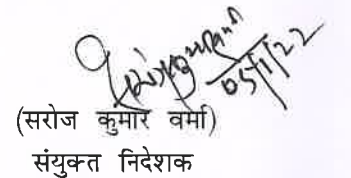 05/1/22
(सरोज कुमार वर्मा)
संयुक्त निदेशक